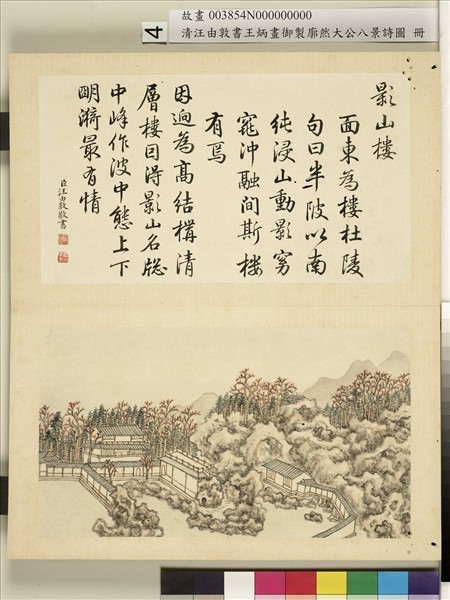 故畫 003854N000000000
4
清汪由敦書王炳畫御製廓然大公八景詩圖 冊
影山樓
面東為樓杜陵
句曰半陂以南
純浸山動影窈
窕沖融間斯樓
有焉
因迥為高結構清
層樓因得影山名
中峰作波中態上下
明漪最有情
臣汪由敦敬書